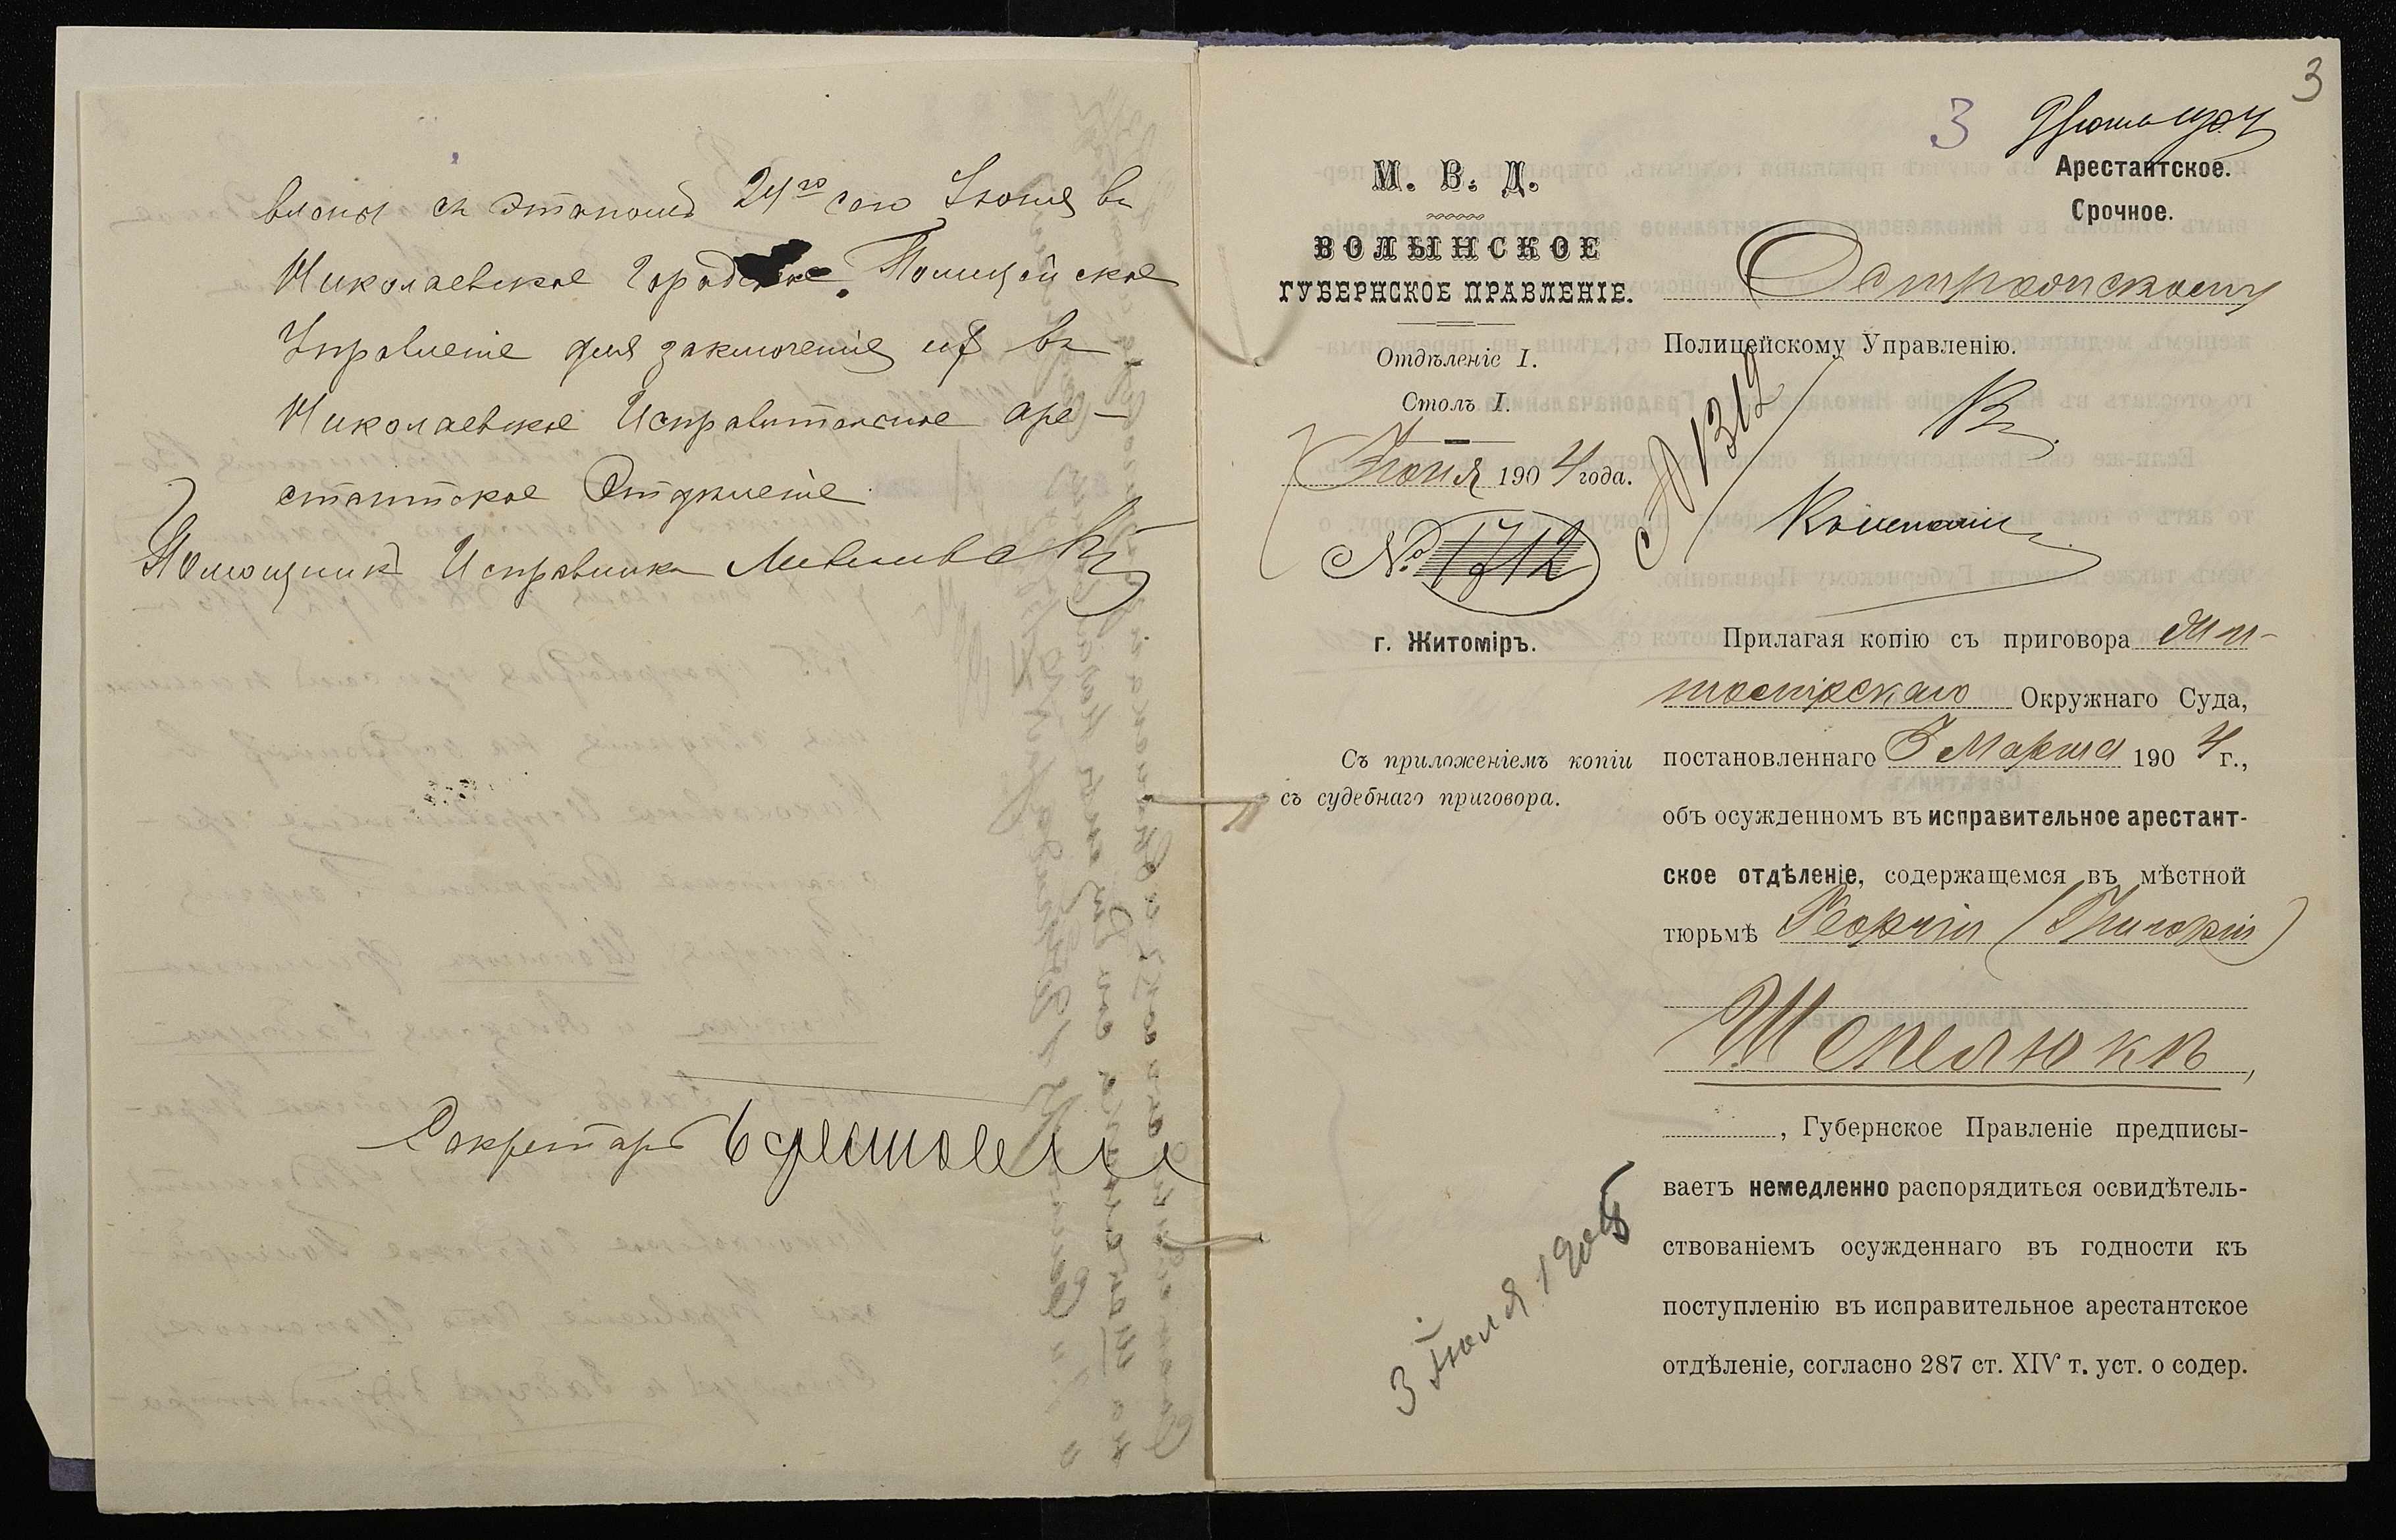 влены съ этапомъ 24го сего Іюня въ
Николаевское Городское Полицейское
Управленіе для заключенія ихъ въ
Николаевское Исправительное аре-
стантское Отдѣленіе
Помощникъ Исправника
Секретарь
3
3
М. В. Д.
ВОЛЫНСКОЕ
ГУБЕРНСКОЕ ПРАВЛЕНІЕ.
Отдѣленіе I.
Столъ I.
Іюня 1904 года.
№ 1712
г. Житоміръ.
Съ приложеніемъ копіи
съ судебнаго приговора.
3 Іюля 1905
Арестантское.
Срочное.
Острожскому
Полицейскому Управленію.
1312
Прилагая копію съ приговора Жи-
томірскаго Окружнаго Суда,
постановленнаго 3 Марта 1904 г.,
объ осужденномъ въ исправительное арестант-
ское отдѣленіе, содержащемся въ мѣстной
тюрьмѣ Георгіи (Григоріи)
Шепелюкѣ,
, Губернское Правленіе предписы-
ваетъ немедленно распорядиться освидѣтель-
ствованіемъ осужденнаго въ годности къ
поступленію въ исправительное арестантское
отдѣленіе, согласно 287 ст. XIV т. уст. о содер.